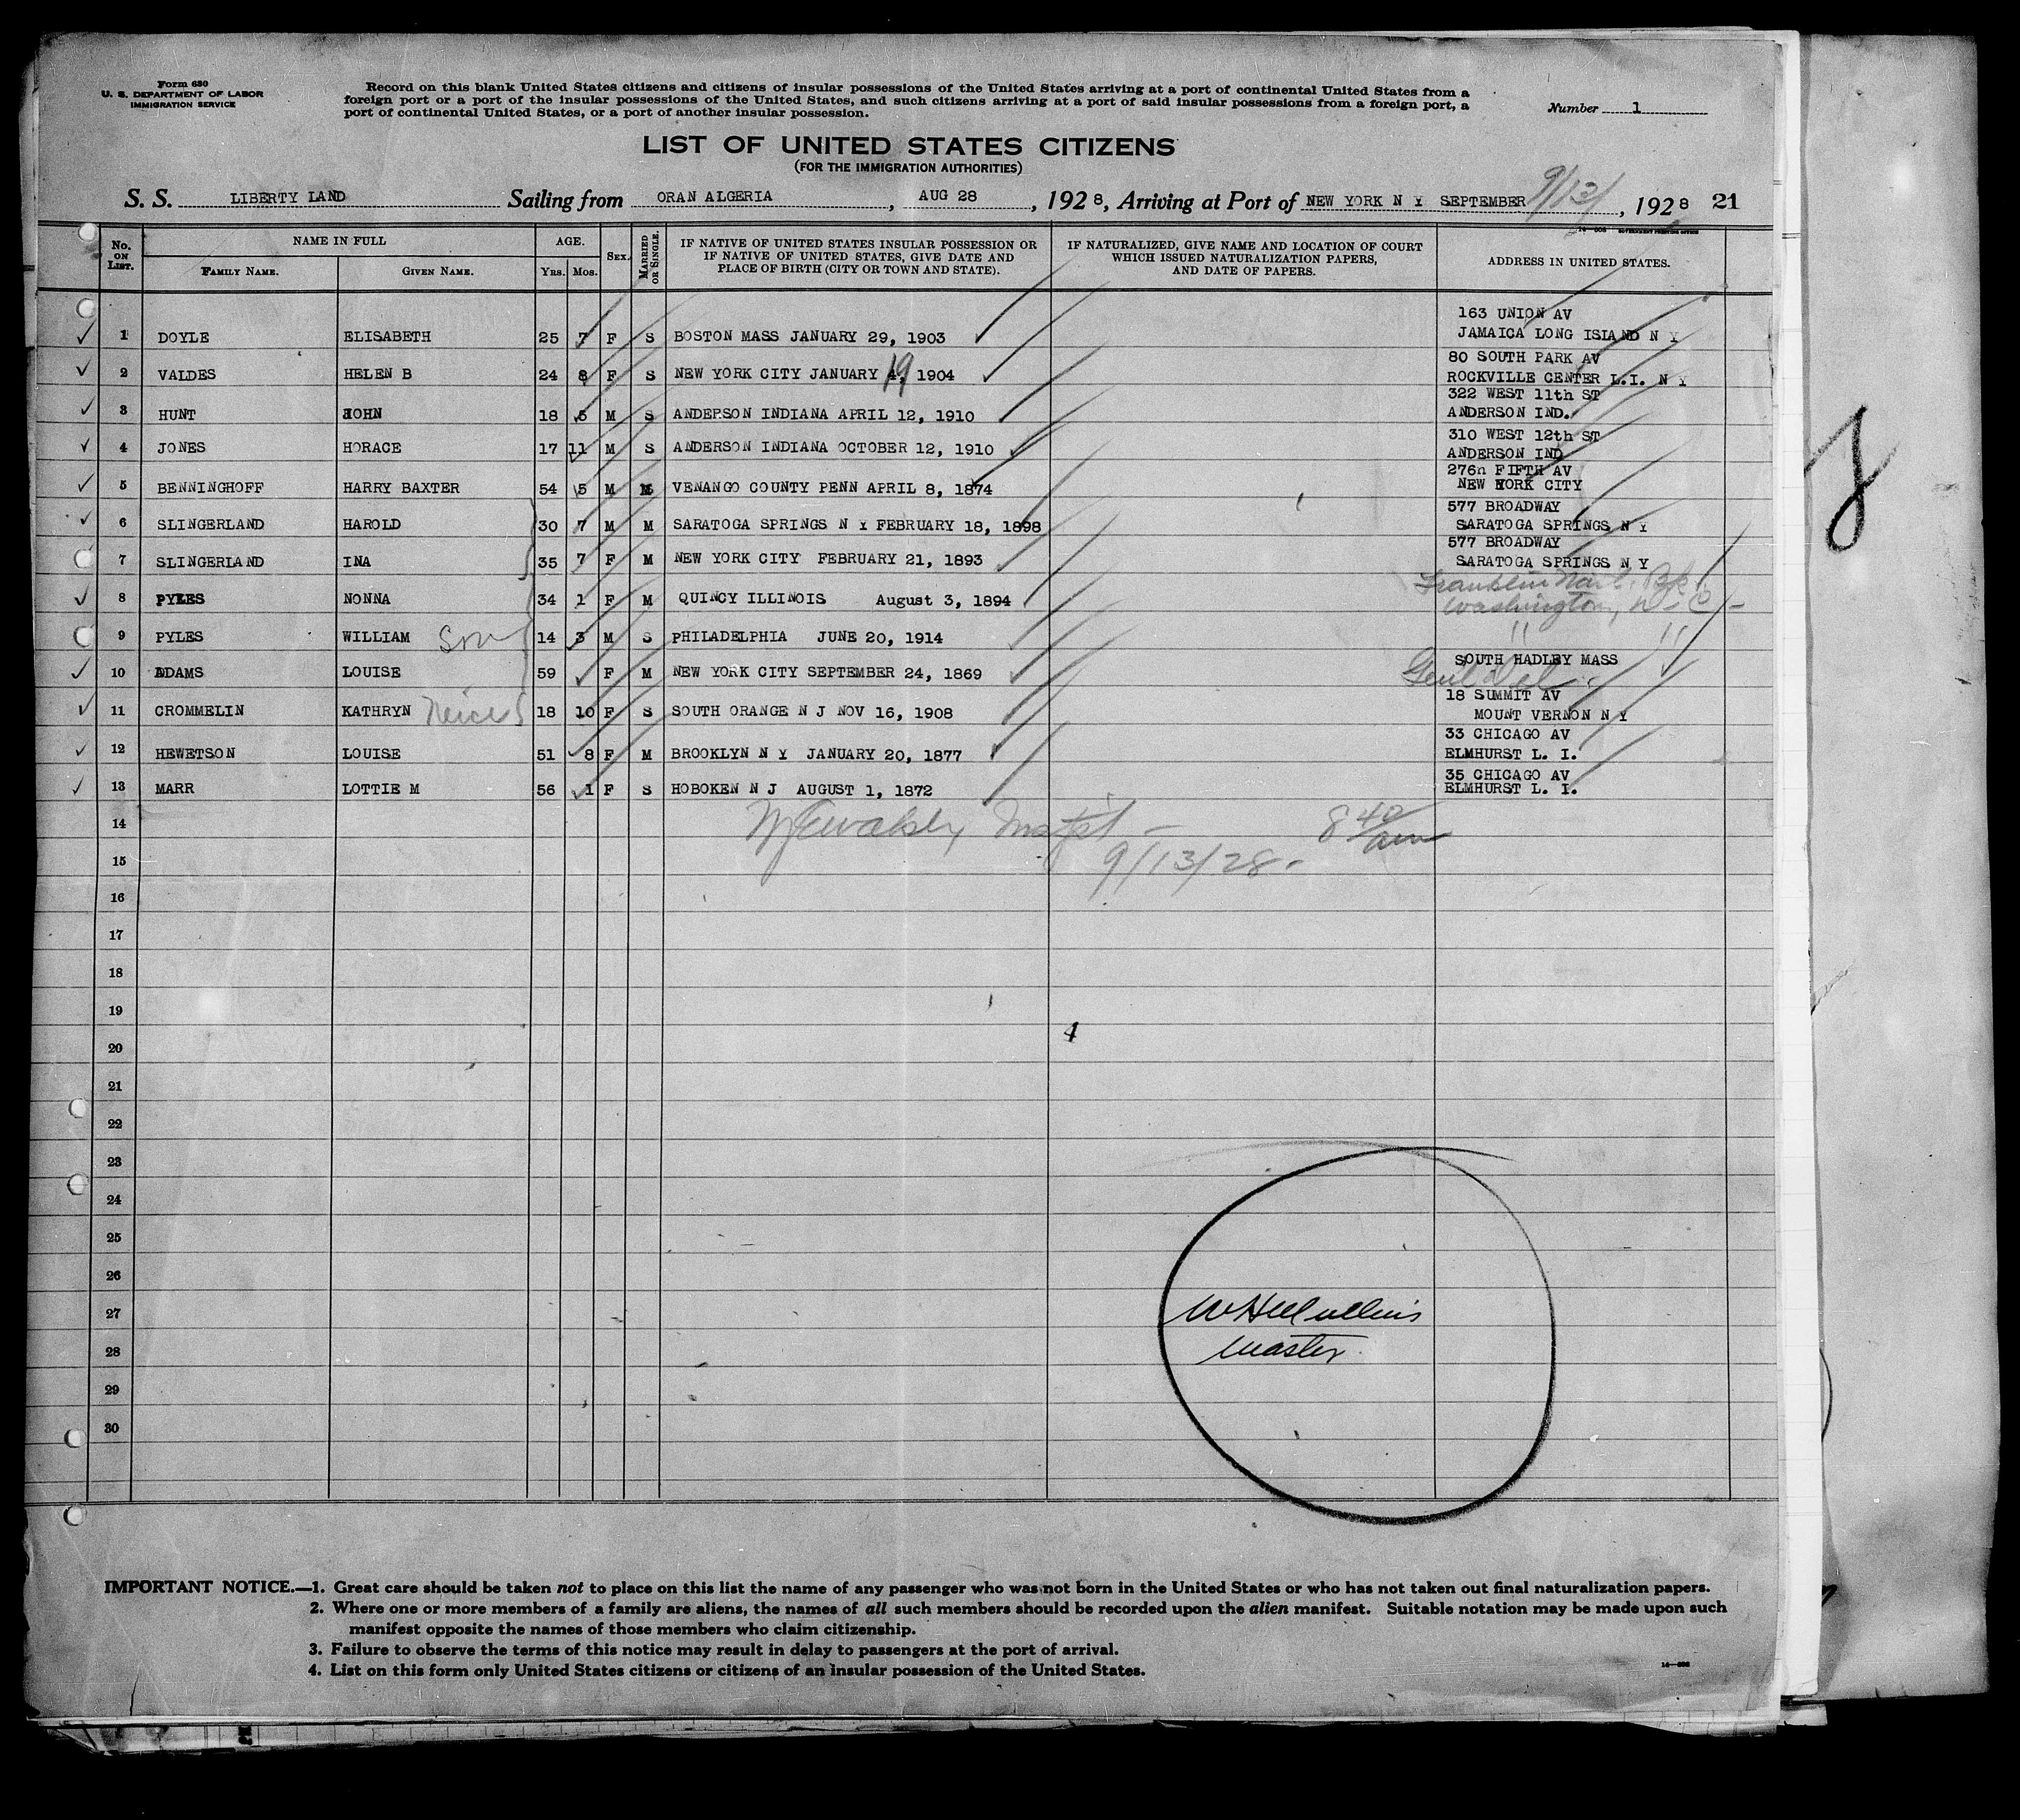 Form 630
U. S. DEPARTMENT OF LABOR
IMMIGRATION SERVICE
Record on this blank United States citizens and citizens of insular possessions of the United States arriving at a port of continental United States from a
foreign port or a port of the insular possessions of the United States, and such citizens arriving at a port of said insular possessions from a foreign port, a
port of continental United States, or a port of another insular possession.
Number 1
LIST OF UNITED STATES CITIZENS
(FOR THE IMMIGRATION AUTHORITIES)
S. S. LIBERTY LAND Sailing from ORAN ALGERIA, AUG 28, 1928, Arriving at Port of NEW YORK N Y SEPTEMBER 9/13/, 1928 21
No. ON LIST.
NAME IN FULL
FAMILY NAME.
GIVEN NAME.
AGE.
Yrs.
Mos.
SEX.
MARRIED OR SINGLE.
IF NATIVE OF UNITED STATES INSULAR POSSESSION OR
IF NATIVE OF UNITED STATES, GIVE DATE AND
PLACE OF BIRTH (CITY OR TOWN AND STATE).
IF NATURALIZED, GIVE NAME AND LOCATION OF COURT
WHICH ISSUED NATURALIZATION PAPERS,
AND DATE OF PAPERS.
ADDRESS IN UNITED STATES.
163 UNION AV
1 DOYLE ELISABETH 25 7 F S BOSTON MASS JANUARY 29, 1903 JAMAICA LONG ISLAND N Y
80 SOUTH PARK AV
2 VALDES HELEN B 24 8 F S NEW YORK CITY JANUARY 19, 1904 ROCKVILLE CENTER L.I. N Y
322 WEST 11th ST
3 HUNT JOHN 18 5 M S ANDERSON INDIANA APRIL 12, 1910 ANDERSON IND.
310 WEST 12th ST
4 JONES HORACE 17 11 M S ANDERSON INDIANA OCTOBER 12, 1910 ANDERSON IND
276n FIFTH AV
5 BENNINGHOFF HARRY BAXTER 54 5 M M VENANGO COUNTY PENN APRIL 8, 1874 NEW YORK CITY
577 BROADWAY
6 SLINGERLAND HAROLD 30 7 M M SARATOGA SPRINGS N Y FEBRUARY 18, 1898 SARATOGA SPRINGS N Y
577 BROADWAY
7 SLINGERLAND INA 35 7 F M NEW YORK CITY FEBRUARY 21, 1893 SARATOGA SPRINGS N Y
Franklin Nat'l. Bk.
8 PYLES NONNA 34 1 F M QUINCY ILLINOIS August 3, 1894 Washington, D-C-
9 PYLES WILLIAM Son 14 3 M S PHILADELPHIA JUNE 20, 1914 " "
SOUTH HADLEY MASS
10 ADAMS LOUISE 59 F M NEW YORK CITY SEPTEMBER 24, 1869 Genl Del
18 SUMMIT AV
11 CROMMELIN KATHRYN Neice 18 10 F S SOUTH ORANGE N J NOV 16, 1908 MOUNT VERNON N Y
33 CHICAGO AV
12 HEWETSON LOUISE 51 8 F M BROOKLYN N Y JANUARY 20, 1877 ELMHURST L. I.
35 CHICAGO AV
13 MARR LOTTIE M 56 1 F S HOBOKEN N J AUGUST 1, 1872 ELMHURST L. I.
14 8 40 am
15 9/13/28-
16
17
18
19
4
20
21
22
23
24
25
26
27
28 Master
29
30
IMPORTANT NOTICE.—1. Great care should be taken not to place on this list the name of any passenger who was not born in the United States or who has not taken out final naturalization papers.
2. Where one or more members of a family are aliens, the names of all such members should be recorded upon the alien manifest. Suitable notation may be made upon such
manifest opposite the names of those members who claim citizenship.
3. Failure to observe the terms of this notice may result in delay to passengers at the port of arrival.
4. List on this form only United States citizens or citizens of an insular possession of the United States.